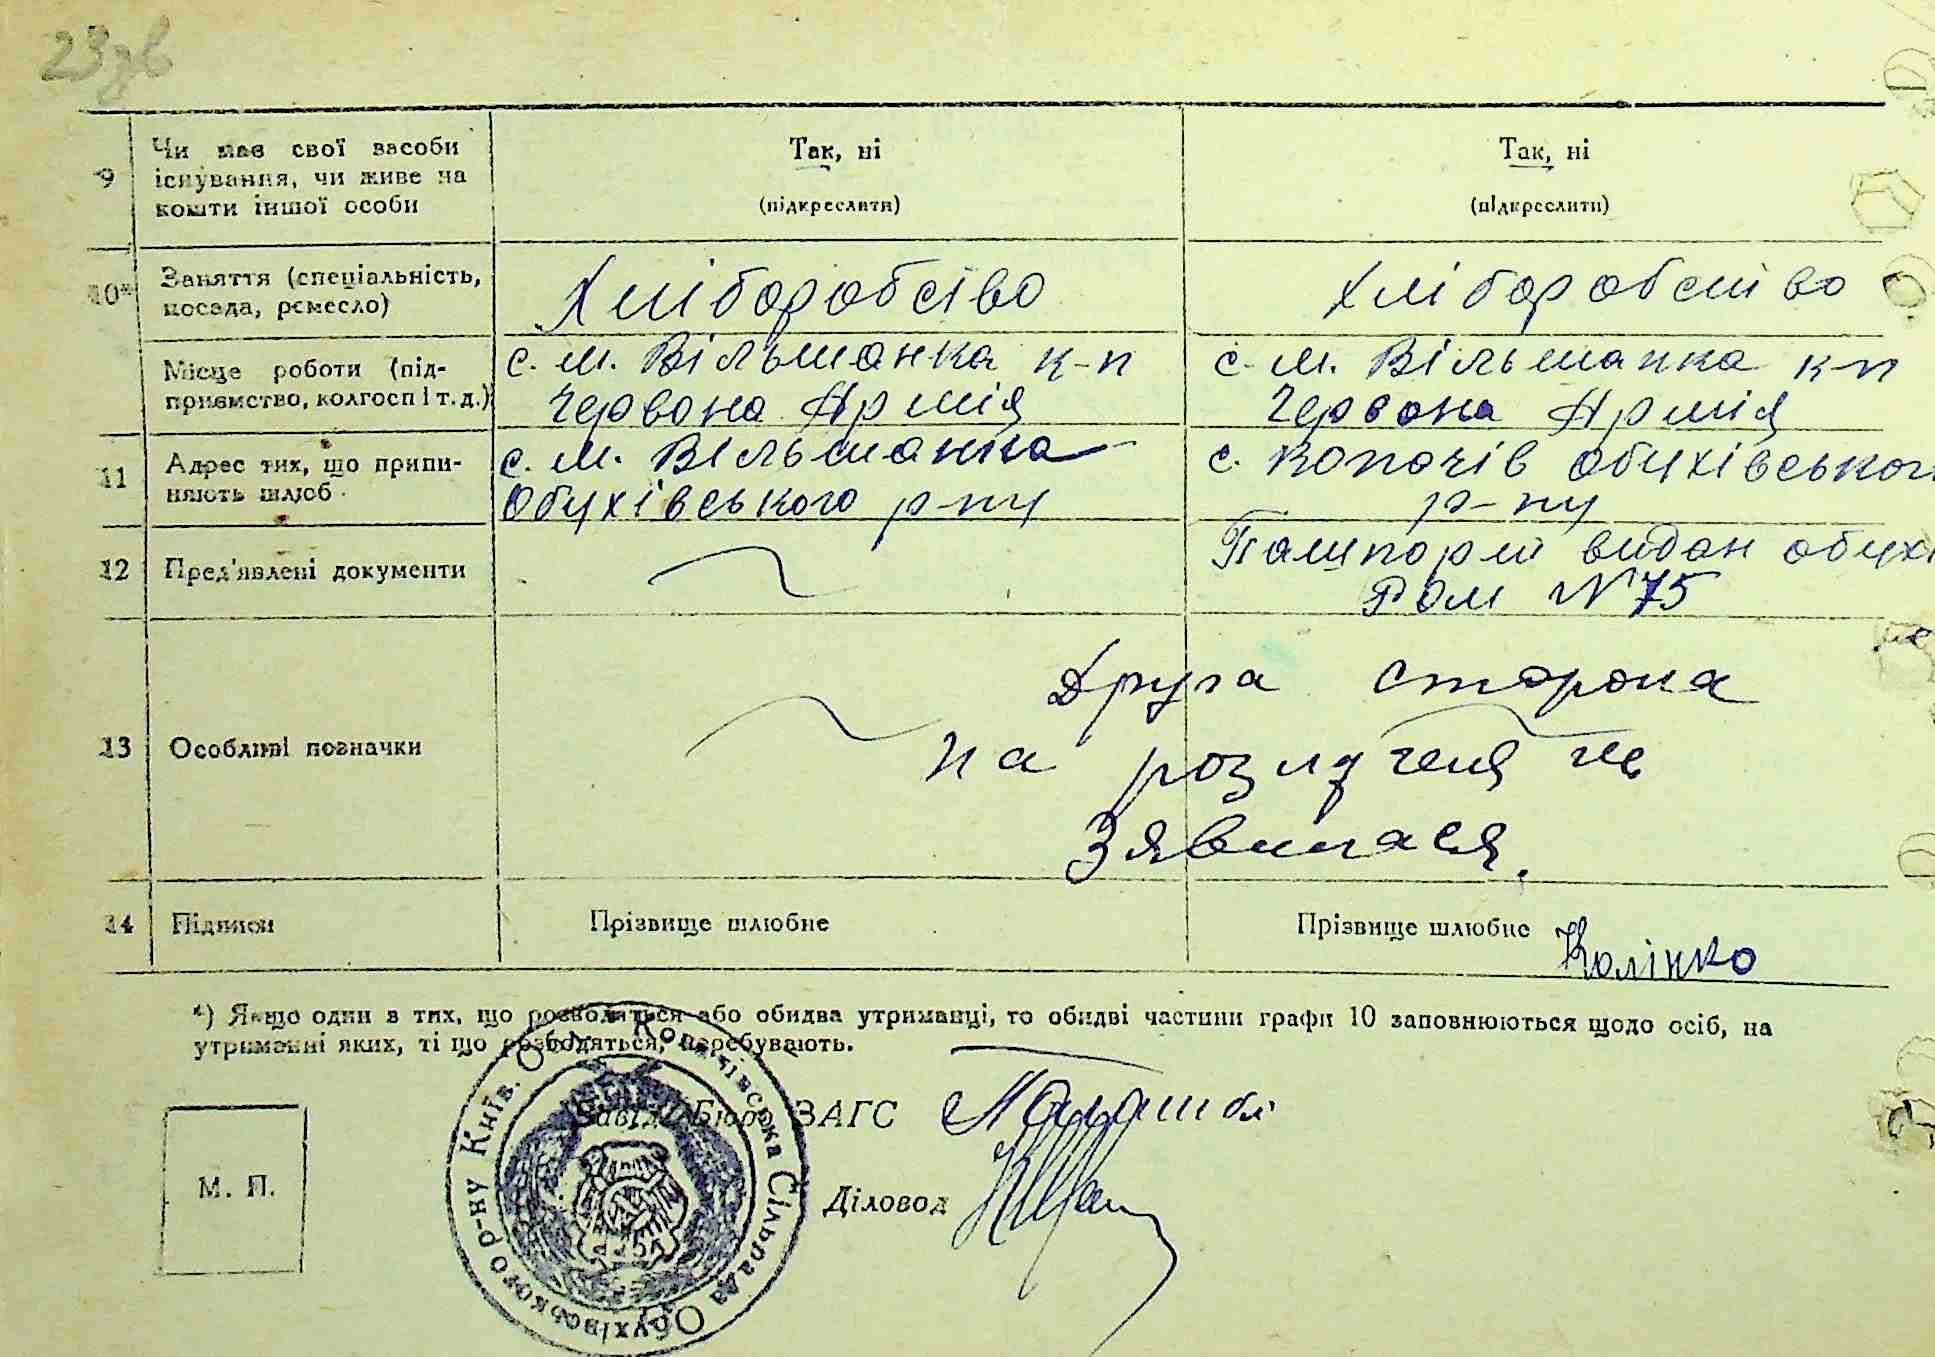 23 зв
9 Чи має свої засоби існування, чи живе на кошти іншої особи
Так, ні
(підкреслити)
Так, ні
(підкреслити)
10* Заняття (спеціальність, посада, ремесло)
Хліборобство
Хліборобство
Місце роботи (підприємство, колгосп і т. д.)
с. М. Вільшанка к-п
Червона Армія
с. М. Вільшанка к-п
Червона Армія
11 Адрес тих, що припиняють шлюб
с. М. Вільшанка
Обухівського р-ну
с. Копачів Обухівського
р-ну
12 Пред'явлені документи
Пашпорт видан Обухі
РОМ №75
13 Особливі позначки
Друга сторона
на розлученя не
Зявилася.
14 Підписи
Прізвище шлюбне
Прізвище шлюбне Колінко
*) Якщо один з тих, що розводяться або обидва утриманці, то обидві частини графи 10 заповнюються щодо осіб, на
утриманні яких, ті що розводяться, перебувають.
Завід. Бюро ЗАГС
М. П.
Діловод
Копачівська Сільрада Обухівського р-ну Київ. Обл.